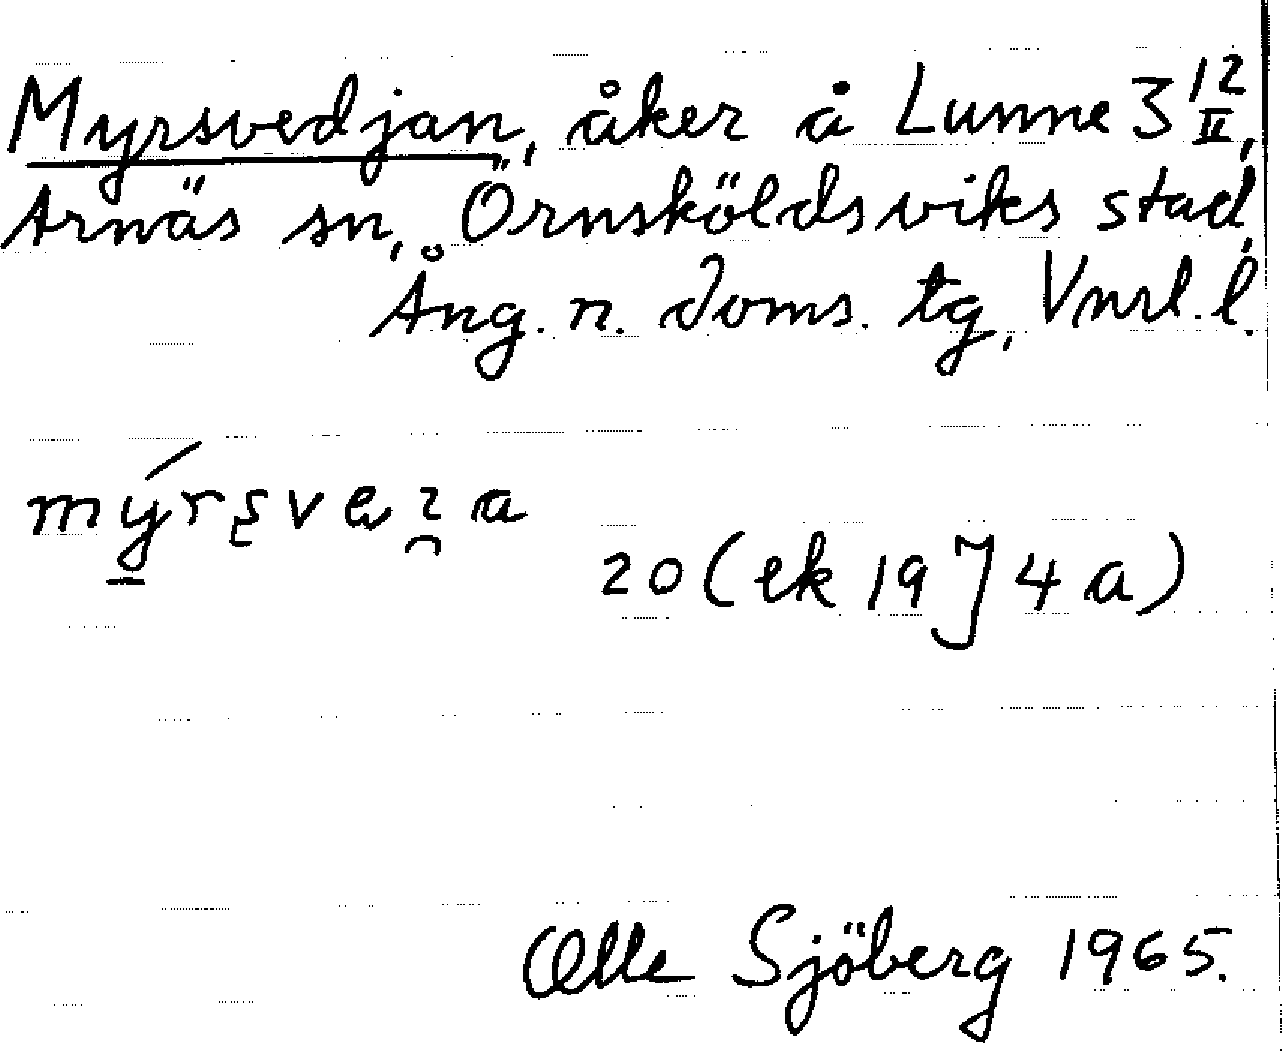 Myrsvedjan, åker å Lunne 3 12/II,
Arnäs sn, Örnsköldsviks stad,
Ång. n. doms. tg, Vnrl. l.
20 (ek 19 J 4 a)
Olle Sjöberg 1965.